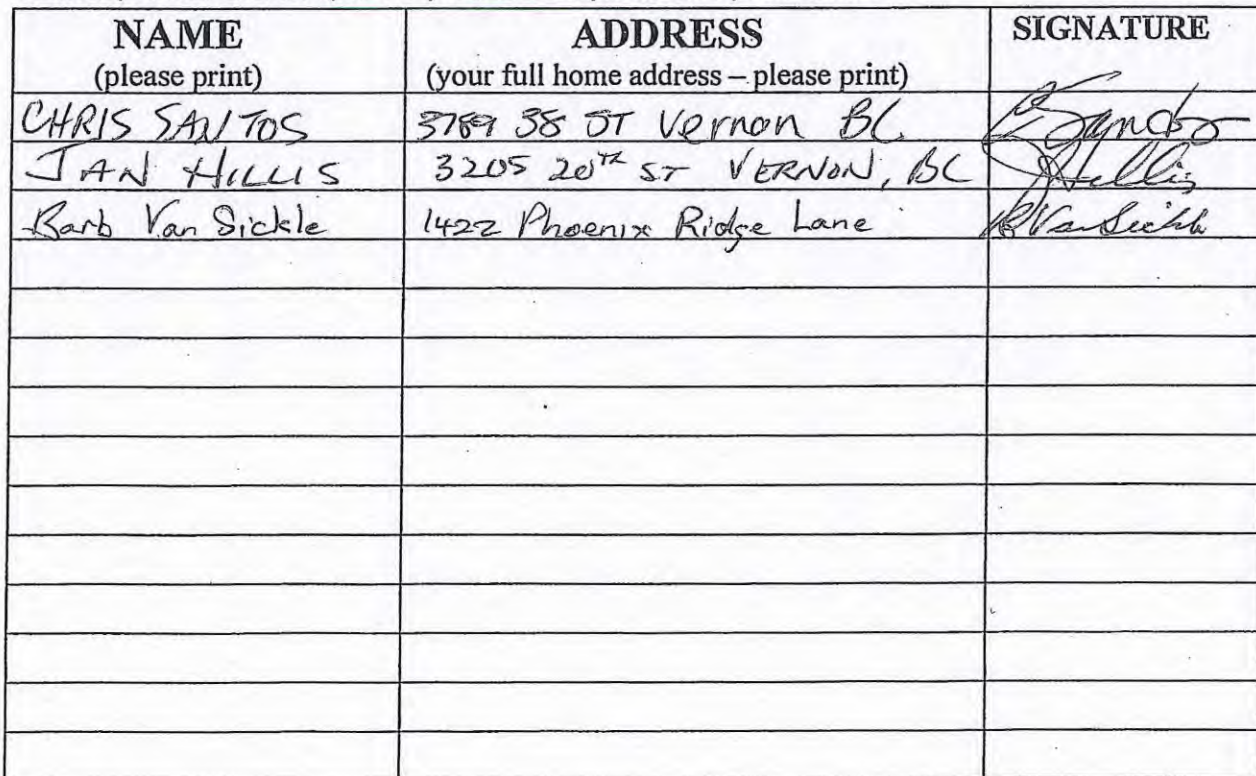 NAME ADDRESS SIGNATURE
(please print) (your full home address – please print)
CHRIS SANTOS 3789 38 ST Vernon BC. CSantos
JAN HILLIS 3205 20TH ST VERNON, BC JHillis
Barb Van Sickle 1422 Phoenix Ridge Lane BVanSickle